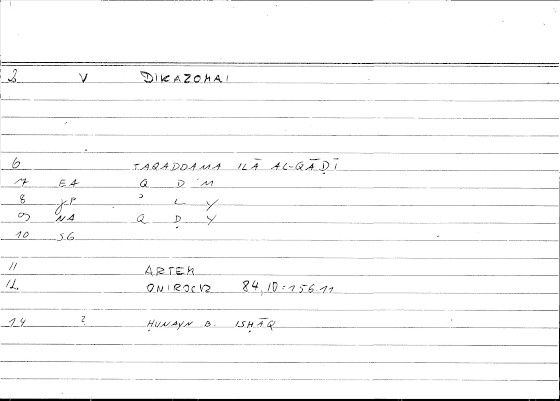 3 V DIKAZOMAI
6 TAQADDAMA ILĀ AL-QĀḌĪ
7 EA Q D M
8 gP ʾ L Y
9 NA Q Ḍ Y
10 SG
11 ARTEM
12 ONIROCR 84,10=156.11
14 2 ḤUNAYN B. ISḤĀQ